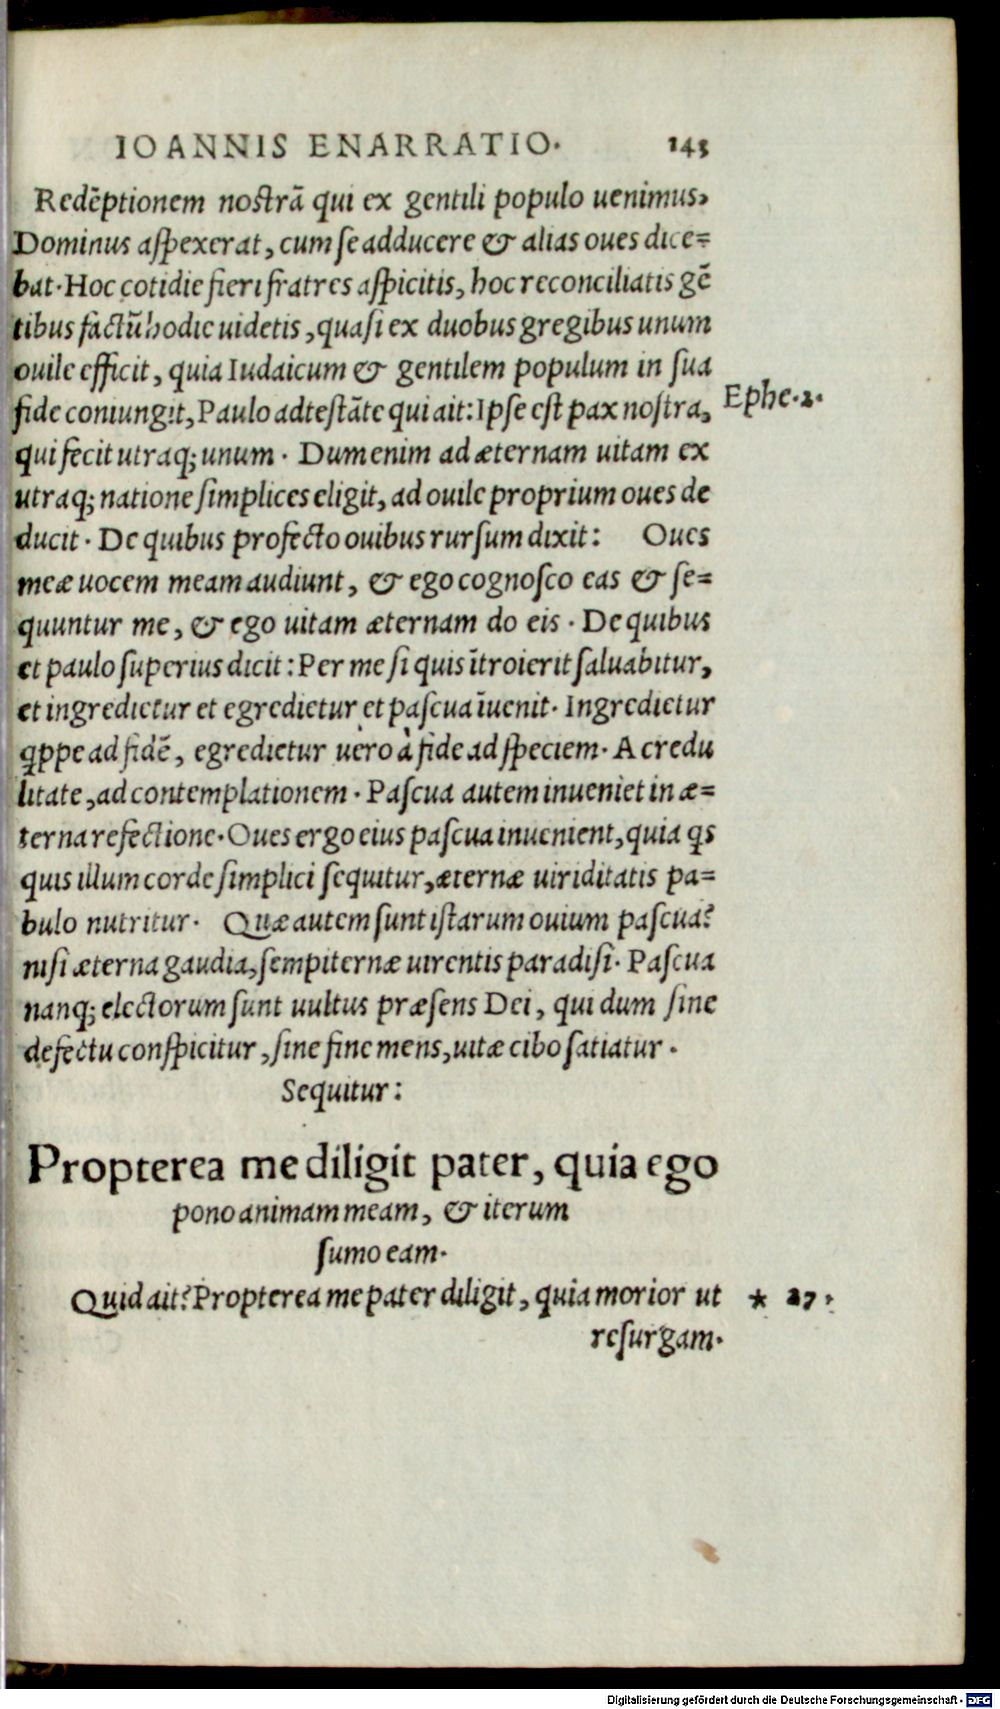 IOANNIS ENARRATIO. 145
Redẽptionem nostrã qui ex gentili populo uenimus,
Dominus aſpexerat, cum ſe adducere & alias oues dice=
bat. Hoc cotidie fieri fratres aſpicitis, hoc reconciliatis gẽ
tibus factũ hodie uidetis, quaſi ex duobus gregibus unum
ouile efficit, quia Iudaicum & gentilem populum in ſua
fide coniungit, Paulo adteſtãte qui ait: Ipſe est pax noſtra,
Ephe.2.
qui fecit utraq; unum. Dum enim ad æternam uitam ex
utraq; natione ſimplices eligit, ad ouile proprium oues de
ducit. De quibus profecto ouibus rurſum dixit: Oues
meæ uocem meam audiunt, & ego cognoſco eas & ſe=
quuntur me, & ego uitam æternam do eis. De quibus
et paulo ſuperius dicit: Per me ſi quis ĩtroierit ſaluabitur,
et ingredietur et egredietur et paſcua ĩuenit. Ingredietur
ꝗppe ad fidẽ, egredietur uero à fide ad ſpeciem. A credu
litate, ad contemplationem. Paſcua autem inueniet in æ=
terna refectione. Oues ergo eius paſcua inuenient, quia ꝗs
quis illum corde ſimplici ſequitur, æternæ uiriditatis pa=
bulo nutritur. Quæ autem ſunt iſtarum ouium paſcua?
niſi æterna gaudia, ſempiternæ uirentis paradiſi. Paſcua
nanq; electorum ſunt uultus præſens Dei, qui dum ſine
defectu conſpicitur, ſine fine mens, uitæ cibo ſatiatur.
Sequitur:
Propterea me diligit pater, quia ego
pono animam meam, & iterum
ſumo eam.
Quid ait? Propterea me pater diligit, quia morior ut * 27.
reſurgam.
Digitalisierung gefördert durch die Deutsche Forschungsgemeinschaft - DFG